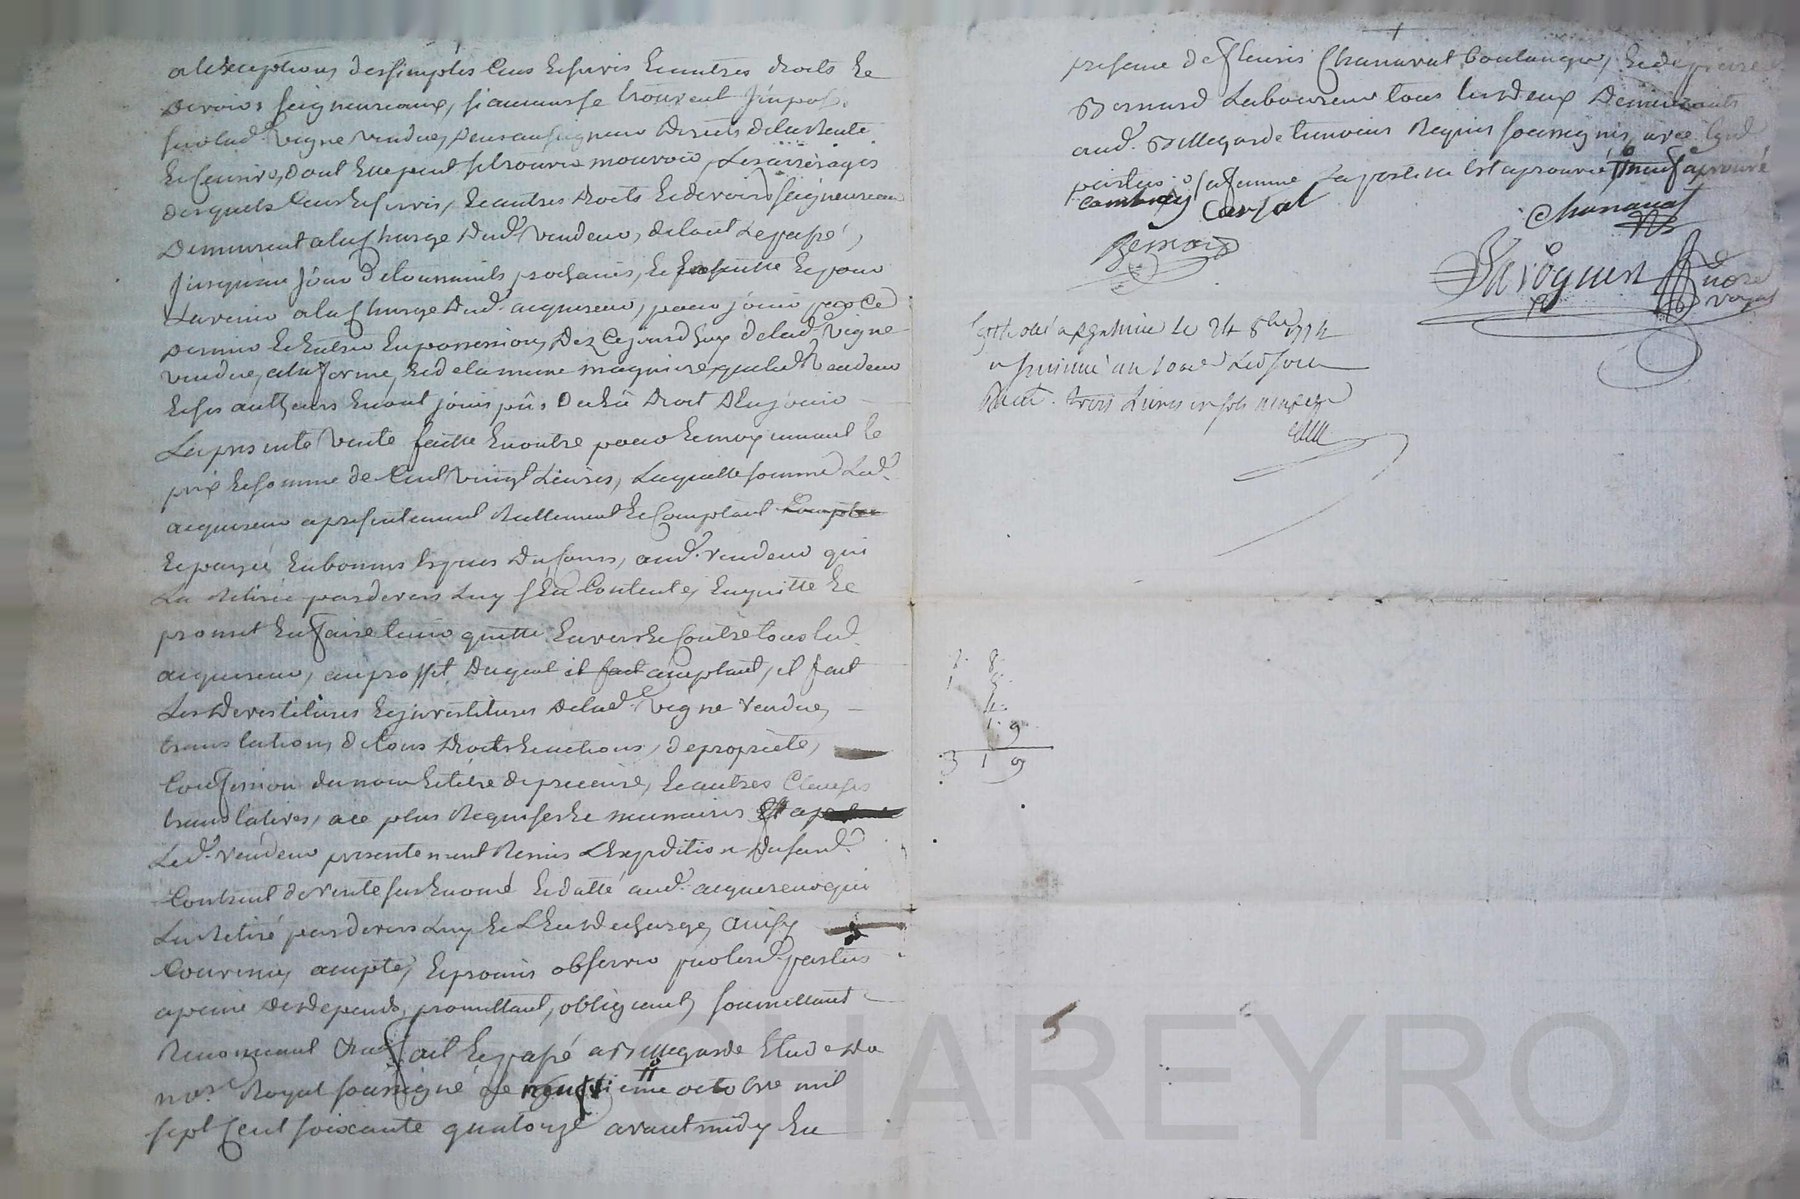 a l'exceptions des simples Cens Et servis Et autres droits Et
Devoirs seigneuriaux, si aucuns se trouvent Jmposés
sur lad.e Vigne vendue, Deus au seigneur Directs de la Rente
Et Censive, dont Elle peut se trouver mouvoir, Les arrérages
desquels Cens Et servis, Et autres Droits Et devoirs seigneuriaux
Demeurent a la Charge Dud.t Vendeur, de tout Le passé,
Jusqu'au Jour de toussaints prochains, Et Ensuitte Et pour
L'avenir a la Charge Dud. acquereur, pour jouir
Et Entrer En possession, Dez Ce jourd'huy de lad.e Vigne
vendue, a la forme, Et de la meme maniere, que led.t Vendeur
Et ses autheurs En ont jouis pû, Deub Droit D'En jouir
La presente Vente faitte En outre pour Et moyennant le
prix Et somme de Cent Vingt Livres, Laquelle somme Led.t
acquereur a presentement Réellement Et Comptant Compter
Et payée En bonnes Espèces Du Cours, aud.t vendeur qui
La Retirée pardevers Luy s'En Contente, En quitte Et
promet En faire tenir quitte Envers Et Contre tous led.t
acquereur, au proffit Duquel il fait acceptant, il fait
Les Devestitures Et jnvestitures De lad.e Vigne vendue,
translations de tous Droits Et actions, de proprieté,
Confession du nom Et titre de precaire, Et autres Clauses
translatives, a ce plus Requises Et necessaires Et a
Led.t Vendeur presentement Remis L'Expedition Dusud.t
Contract de vente sus Enoncé Et datté aud.t acquereur qui
La Retiré pardevers Luy Et L'En Decharge, ainsy
Convenu, accepté, Et promis observer par lesd.s parties
a peine De Depends, promettant, obligeant, soumettant
Renonceant Fait Et passé a Bellegarde Etude Du
no.re Royal soussigné Le octobre mil
sept Cent soixante quatorze avant midy En
presence de fleuris Chanavat boulanger, Et de pierre
Bernard Laboureur tous Les Deux Demeurants
aud.t Bellegarde temoins Requis soussignés avec lesd.
parties sa femme La postille Est aprouvée aprouvé
Carsat
Chanavat
Bernard
no.re
royal
Controllé a le 24 8bre 1774
insinué au Led jour
Recu trois Livres
7. 8
1
1 9
3 1 9
CHAREYRON